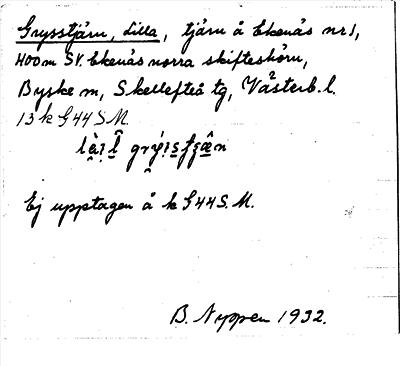 Grysstjärn, Lilla, tjärn å Ekenäs nr 1,
400 m SV. Ekenäs norra skifteshörn,
Byske sn, Skellefteå tg, Västerb. l.
13 k G 44 S M.
Ej upptagen å k G 44 S. M.
B. Nyppen 1932.